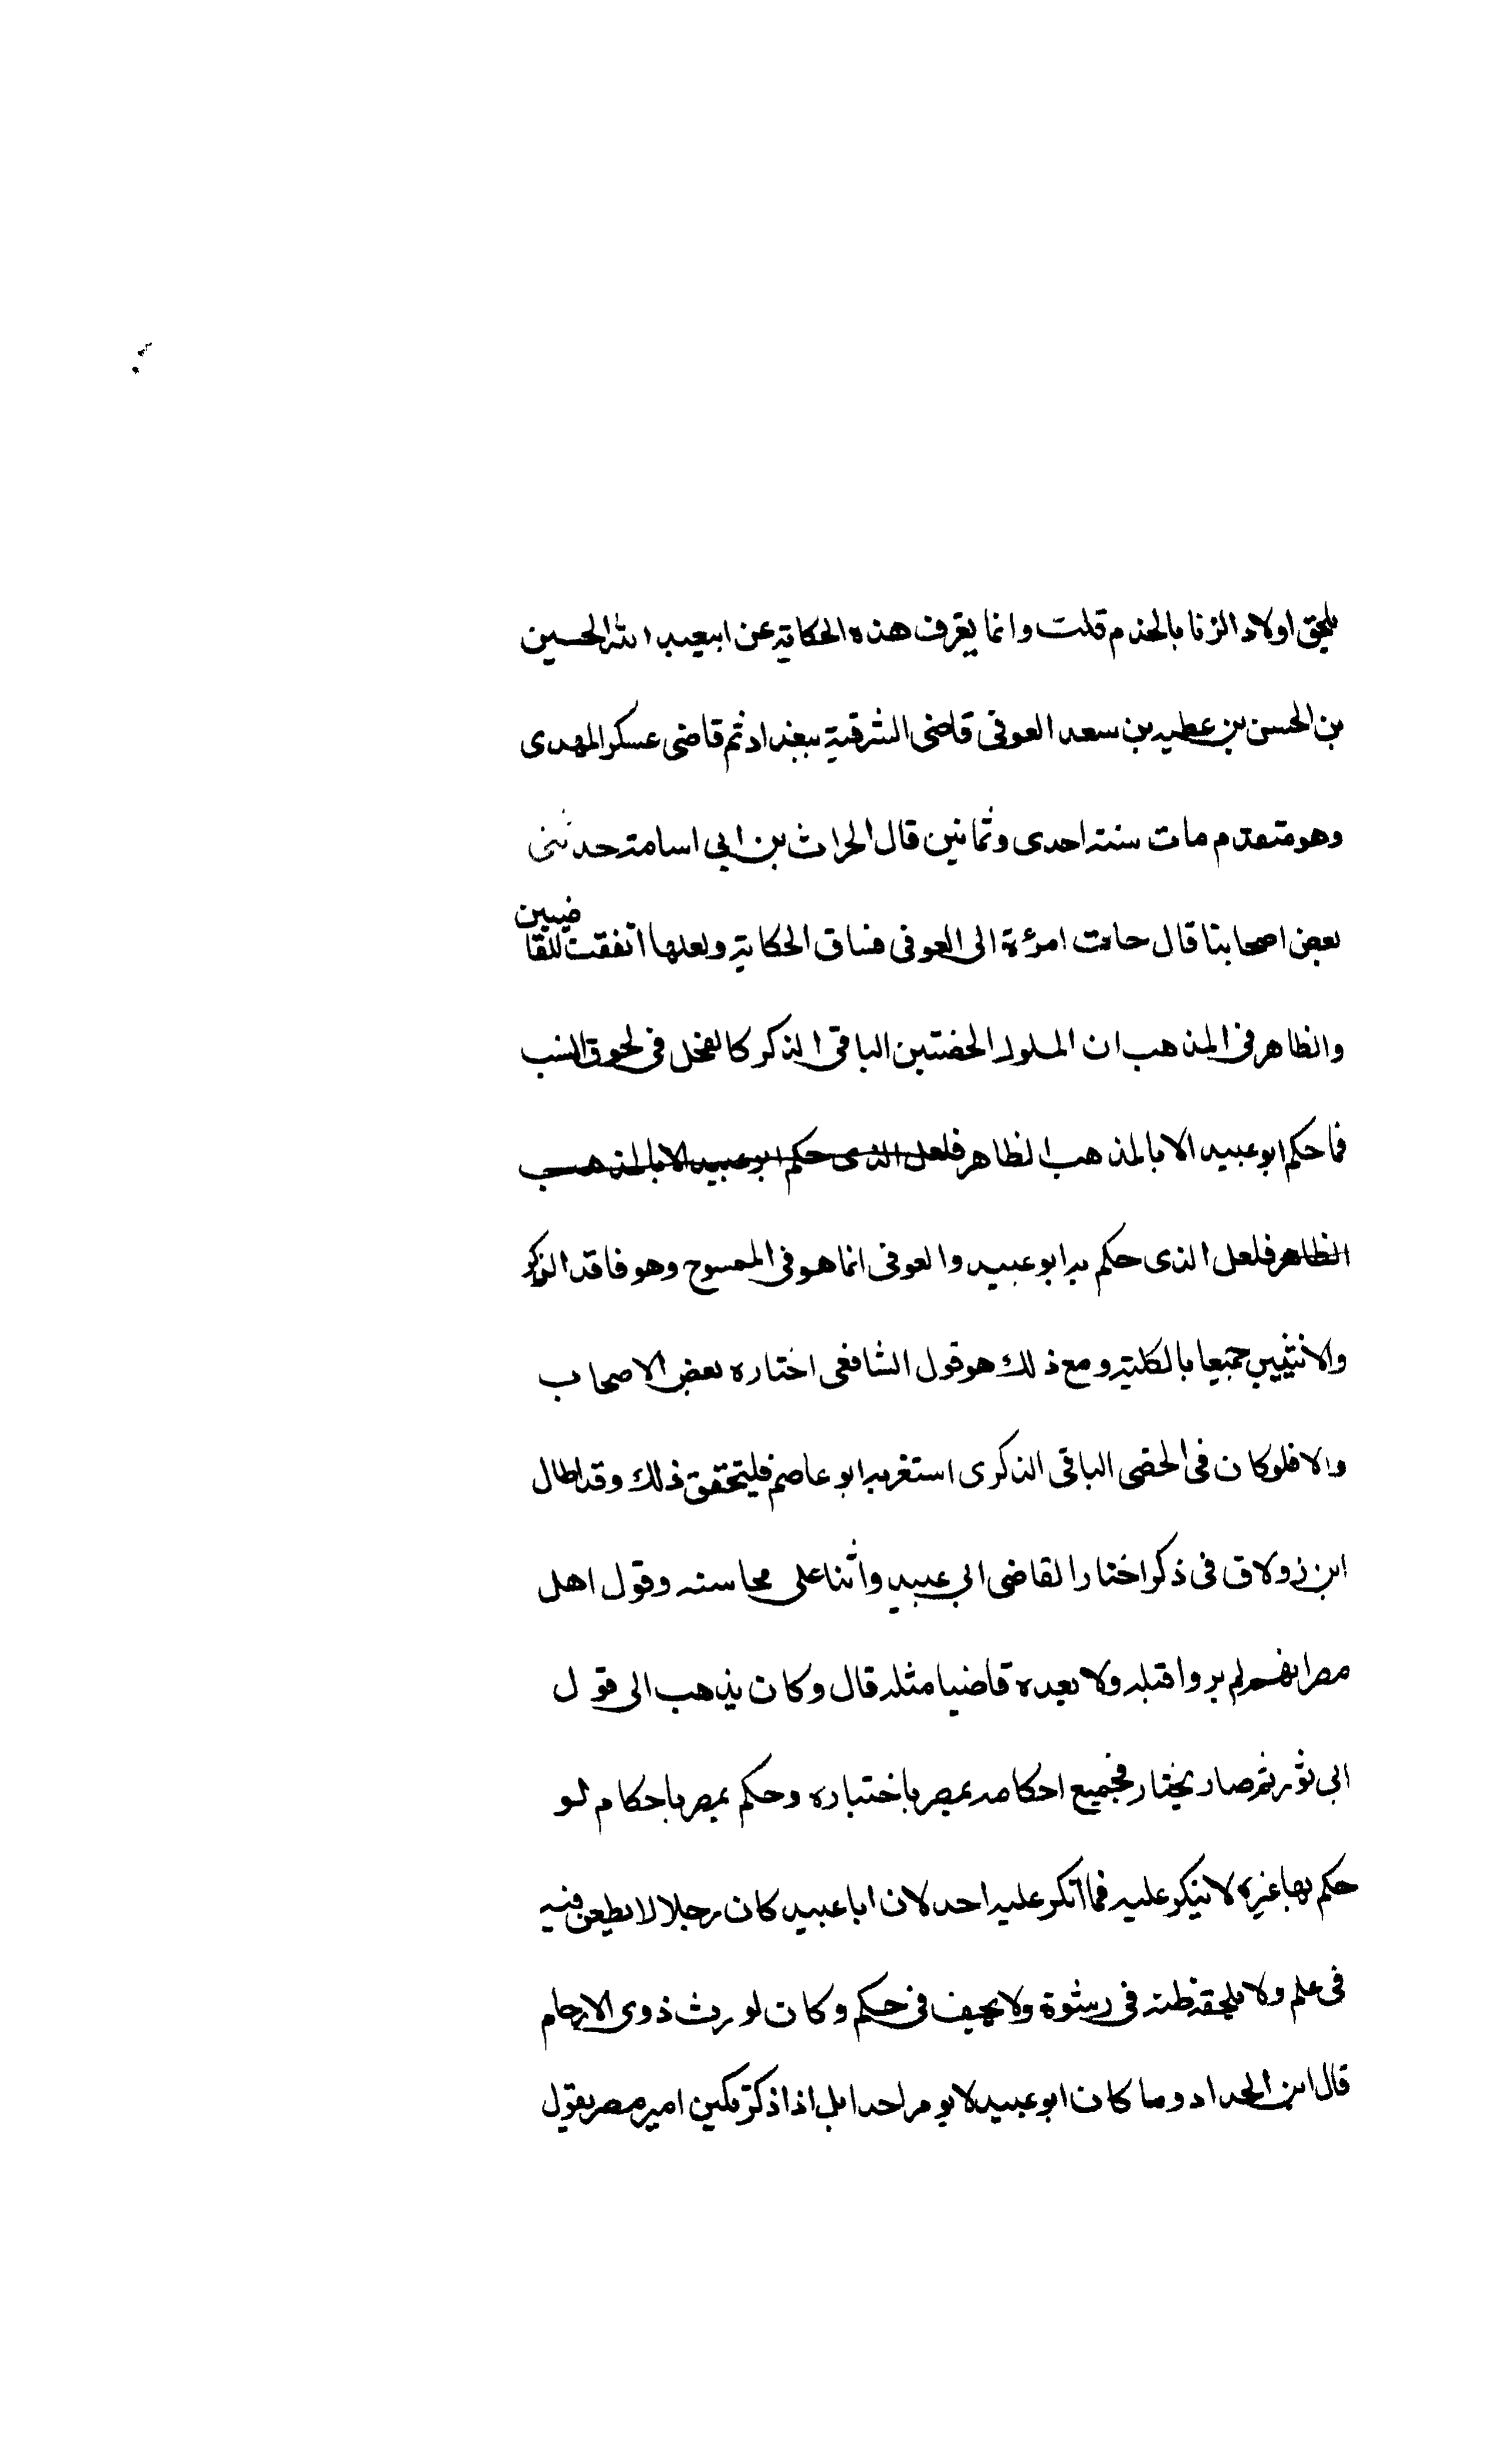 يلحق اولاد الزنا بالخدم قلت وانما يعرف هذه الحكاية عن ابيعبد الله الحسين
بن الحسن بن عطيه بن سعد العوفى قاضى الشرقية ببغداد ثم قاضى عسكر المهدى
وهو متقدم مات سنة احدى وثمانين قال الحراث بن ابى اسامة حدثنى
بعض اصحابنا قال جاءت امرءة الى العوفى فساق الحكاية ولعلها اتفقت للقاضيين
والظاهر فى المذهب ان المسلول الخصيتين الباقى الذكر كالفحل فى لحوق النسب
فما حكم ابو عبيد الا بالمذهب الظاهر فلعل الذى حكم ابو عبيد الا بالمذهب
الظاهر فلعل الذى حكم به ابو عبيد والعوفى انما هو فى الممسوح وهو فاقد الذكر
والانثيين جميعا بالكلية ومع ذلك هو قول الشافعى اختاره بعض الاصحاب
والا فلو كان فى الخصى الباقى الذكرى استغربه ابو عاصم فليتحقق ذلك وقد اطال
ابن زولاق فى ذكر اخبار القاضى ابى عبيد واثنا على محاسنه وقول اهل
مصر انهم لم يروا قبله ولا بعده قاضيا مثله قال وكان يذهب الى قول
ابى ثور ثم صار يختار فجميع احكامه بمصر باختياره وحكم بمصر باحكام لو
حكم بها غيره لانيكر عليه فما انكر عليه احد لان ابا عبيد كان رجلا لا يطعن فيه
فى علم ولا يلحقه ظنه فى رشوة ولا يحيف فى حكم وكان لورث ذوى الارحام
قال ابن الحداد وما كان ابو عبيد لا يومر احدا بل اذا ذكر تكين امير مصر يقول